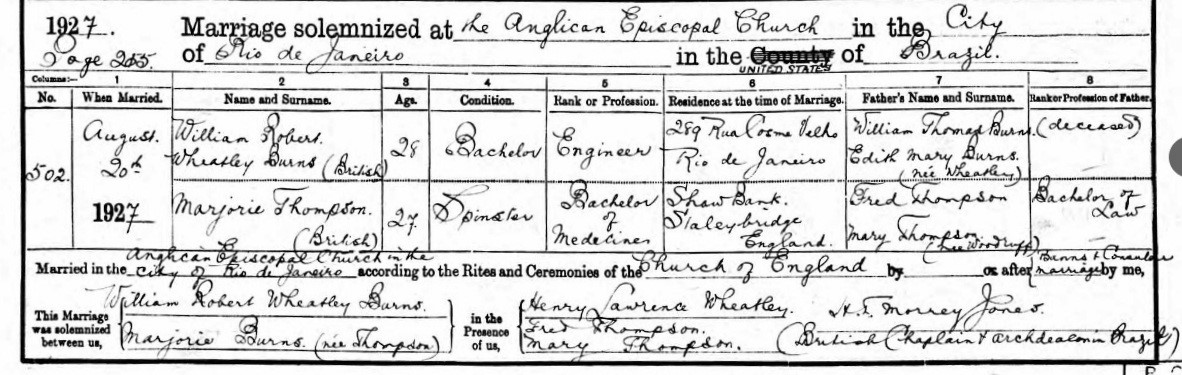 1927. Marriage solemnized at the Anglican Episcopal Church in the City
Page 255. of Rio de Janeiro in the County of Brazil.
UNITED STATES
Columns:— 1 2 3 4 5 6 7 8
No. When Married. Name and Surname. Age. Condition. Rank or Profession. Residence at the time of Marriage. Father's Name and Surname. Rank or Profession of Father.
502. August. 20th 1927
William Robert.
Wheatley Burns (British)
28 Bachelor Engineer
289 Rua Cosme Velho
Rio de Janeiro
William Thomas Burns. (deceased)
Edith Mary Burns.
(née Wheatley)
Marjorie Thompson.
(British)
27. Spinster
Bachelor
of
Medecines
Shaw Bank.
Staleybridge
England.
Fred Thompson
Mary Thompson
(nee Woodruff)
Bachelor of
Law
Anglican Episcopal Church in the
Married in the City of Rio de Janeiro according to the Rites and Ceremonies of the Church of England by or after Banns & Consular marriage by me,
This Marriage
was solemnized
between us,
William Robert Wheatley Burns.
Marjorie Burns. (née Thompson)
in the
Presence
of us,
Henry Lawrence Wheatley.
Fred Thompson.
Mary Thompson.
H. T. Morrey Jones.
(British Chaplain & Archdeacon in Brazil)